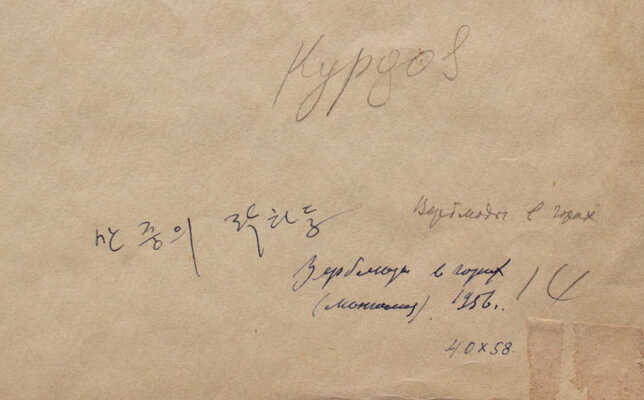 Курдов
산중의 락타들
Верблюды в горах
Верблюды в горах 14
(Монголия). 1956г.
40x58